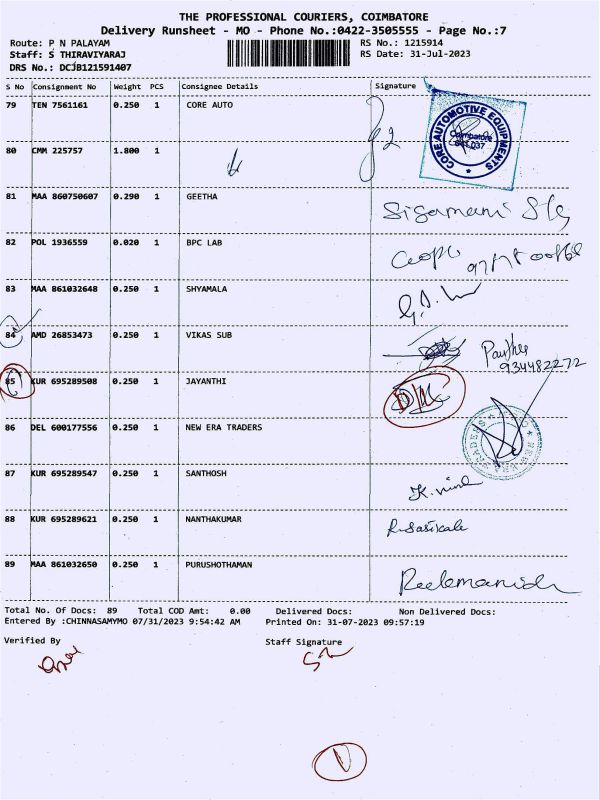 THE PROFESSIONAL COURIERS, COIMBATORE
Delivery Runsheet - MO - Phone No.:0422-3505555 - Page No.:7
Route: P N PALAYAM RS No.: 1215914
Staff: S THIRAVIYARAJ RS Date: 31-Jul-2023
DRS No.: DCJB121591407
S No Consignment No Weight PCS Consignee Details Signature
79 TEN 7561161 0.250 1 CORE AUTO
CORE AUTOMOTIVE EQUIPMENTS
Coimbatore
641 037
80 CMM 225757 1.800 1
81 MAA 860750607 0.290 1 GEETHA
Sigamani
82 POL 1936559 0.020 1 BPC LAB
83 MAA 861032648 0.250 1 SHYAMALA
84 AMD 26853473 0.250 1 VIKAS SUB
934482272
85 KUR 695289508 0.250 1 JAYANTHI
86 DEL 600177556 0.250 1 NEW ERA TRADERS
TRADERS
87 KUR 695289547 0.250 1 SANTHOSH
88 KUR 695289621 0.250 1 NANTHAKUMAR
R. Sasikala
89 MAA 861032650 0.250 1 PURUSHOTHAMAN
Total No. Of Docs: 89 Total COD Amt: 0.00 Delivered Docs: Non Delivered Docs:
Entered By :CHINNASAMYMO 07/31/2023 9:54:42 AM Printed On: 31-07-2023 09:57:19
Verified By Staff Signature